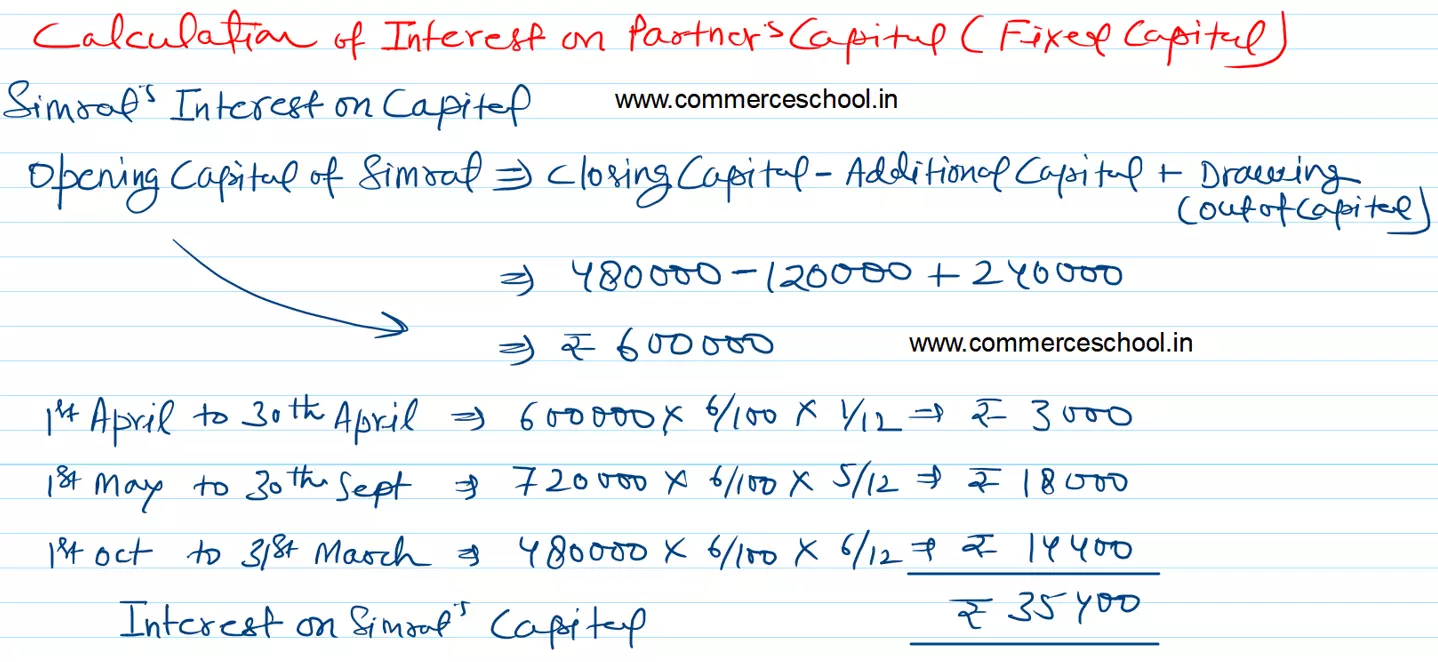 Calculation of Interest on Partner's Capital (Fixed Capital)
Simrat's Interest on Capital www.commerceschool.in
Opening Capital of Simrat ⇒ Closing Capital - Additional Capital + Drawing
(out of Capital)
⇒ 480000 - 120000 + 240000
⇒ ₹ 600000 www.commerceschool.in
1st April to 30th April ⇒ 600000 × 6/100 × 1/12 ⇒ ₹ 3000
1st May to 30th Sept ⇒ 720000 × 6/100 × 5/12 ⇒ ₹ 18000
1st Oct to 31st March ⇒ 480000 × 6/100 × 6/12 ⇒ ₹ 14400
Interest on Simrat's Capital ₹ 35400